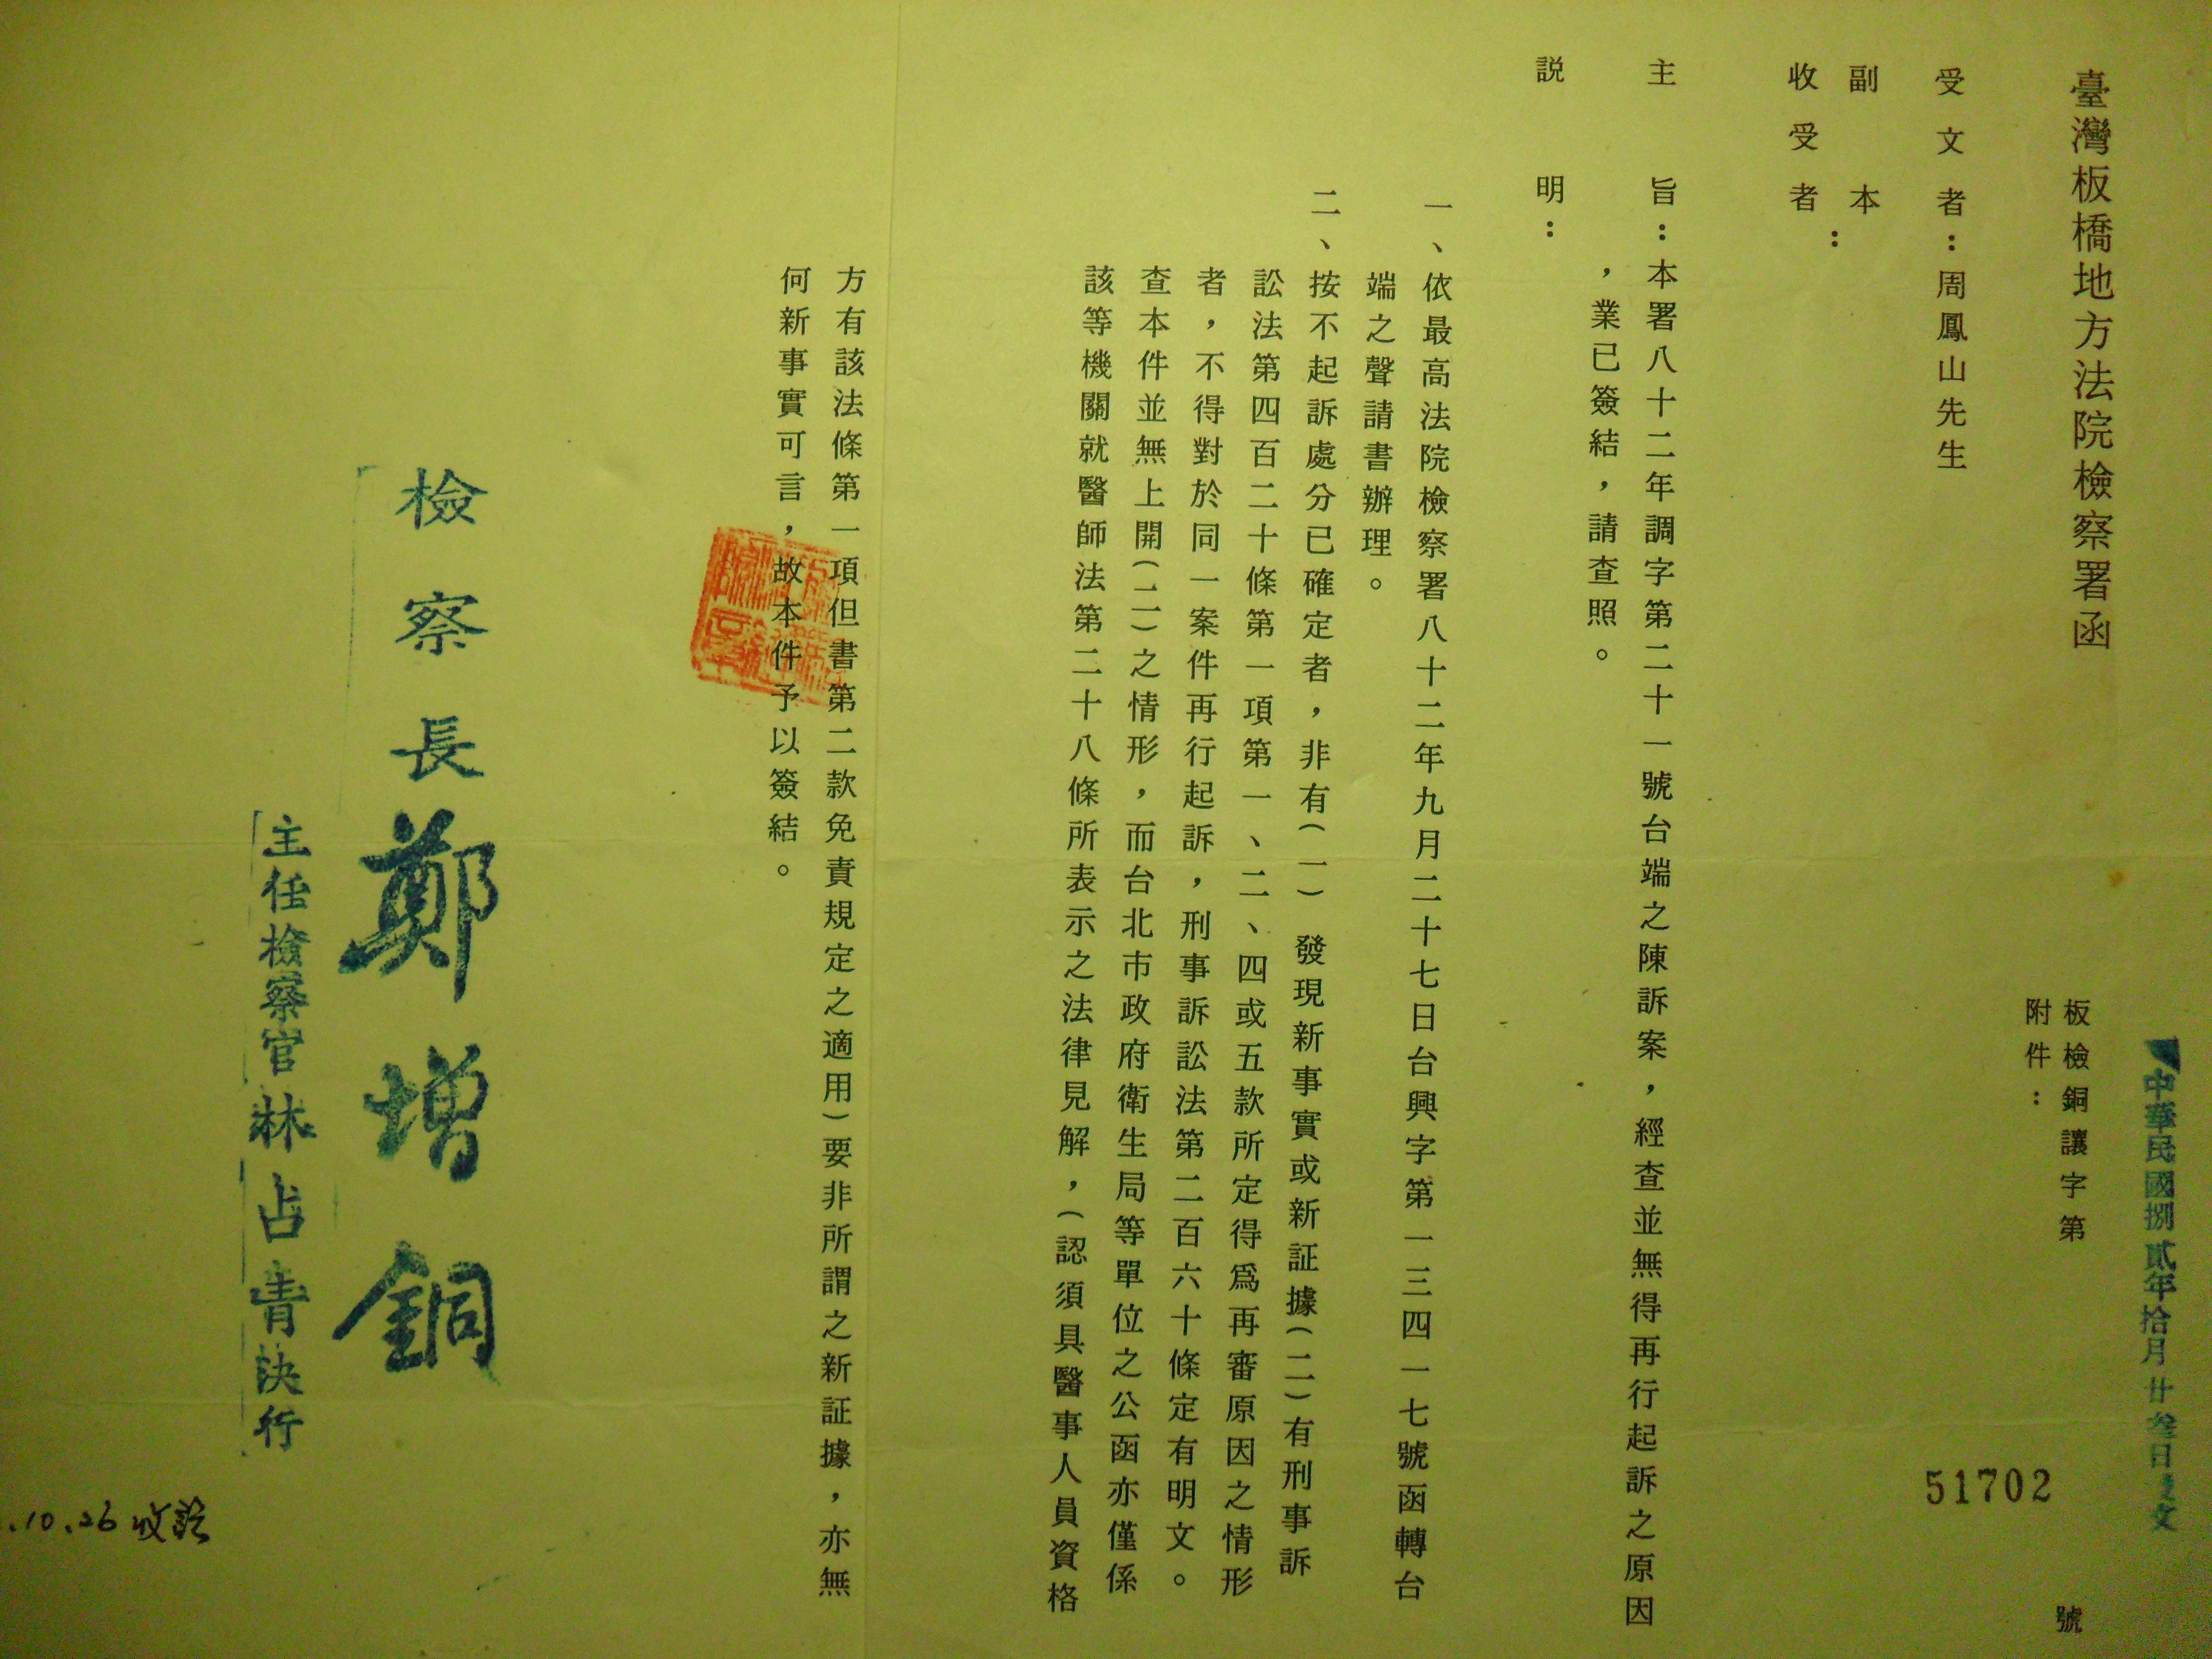 中華民國捌貳年拾月廿叁日發文
臺灣板橋地方法院檢察署函
板檢銅讓字第
51702
號
附件：
受文者：周鳳山先生
副本
收受者：
主旨：本署八十二年調字第二十一號台端之陳訴案，經查並無得再行起訴之原因
，業已簽結，請查照。
説明：
一、依最高法院檢察署八十二年九月二十七日台興字第一三四一七號函轉台
端之聲請書辦理。
二、按不起訴處分已確定者，非有(一)發現新事實或新証據(二)有刑事訴
訟法第四百二十條第一項第一、二、四或五款所定得爲再審原因之情形
者，不得對於同一案件再行起訴，刑事訴訟法第二百六十條定有明文。
查本件並無上開(二)之情形，而台北市政府衛生局等單位之公函亦僅係
該等機關就醫師法第二十八條所表示之法律見解，(認須具醫事人員資格
方有該法條第一項但書第二款免責規定之適用)要非所謂之新証據，亦無
何新事實可言，故本件予以簽結。
檢察長鄭增銅
主任檢察官林占青決行
.10.26收